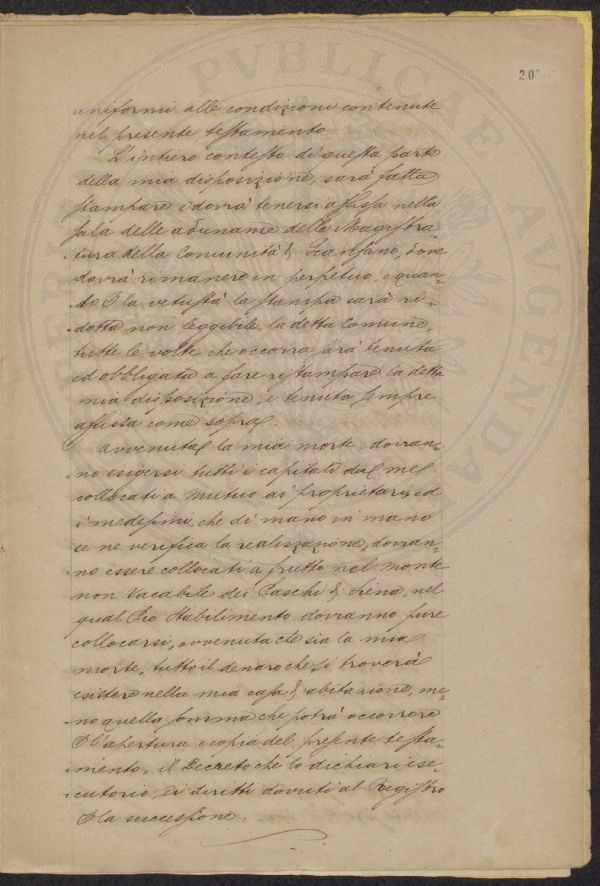 20
uniformi alle condizioni contenute
nel presente testamento
L'intiero contesto di questa parte
della mia disposizione, sarà fatta
stampare e dovrà tenersi affissa nella
sala delle adunanze della Magistra=
tura della Comunità di Scansano, dove
dovrà rimanere in perpetuo, e quan=
do P la vetustà la stampa sarà ri=
dotta non leggibile, la detta Comune,
tutte le volte che occorra sarà tenuta
ed obbligata a fare ristampare la detta
mia disposizione, e tenuta sempre
affissa come sopra.
Avvenuta la mia morte dovran=
no esigersi tutti i capitali da me
collocati a mutuo ai proprietari, ed
i medesimi, che di mano in mano
se ne verifica la realizzazione, dovran=
no essere collocati a frutto nel Monte
non vacabile dei Paschi di Siena, nel
qual Pio Stabilimento dovranno pure
collocarsi, avvenuta che sia la mia
morte, tutto il denaro che si troverà
esistere nella mia casa di abitazione, me=
no quella somma che potrà occorrere
P l'apertura e copia del presente testa=
mento, il Decreto che lo dichiari ese=
cutorio, ei diritti dovuti al Registro
P la successione.
PVBLICAE